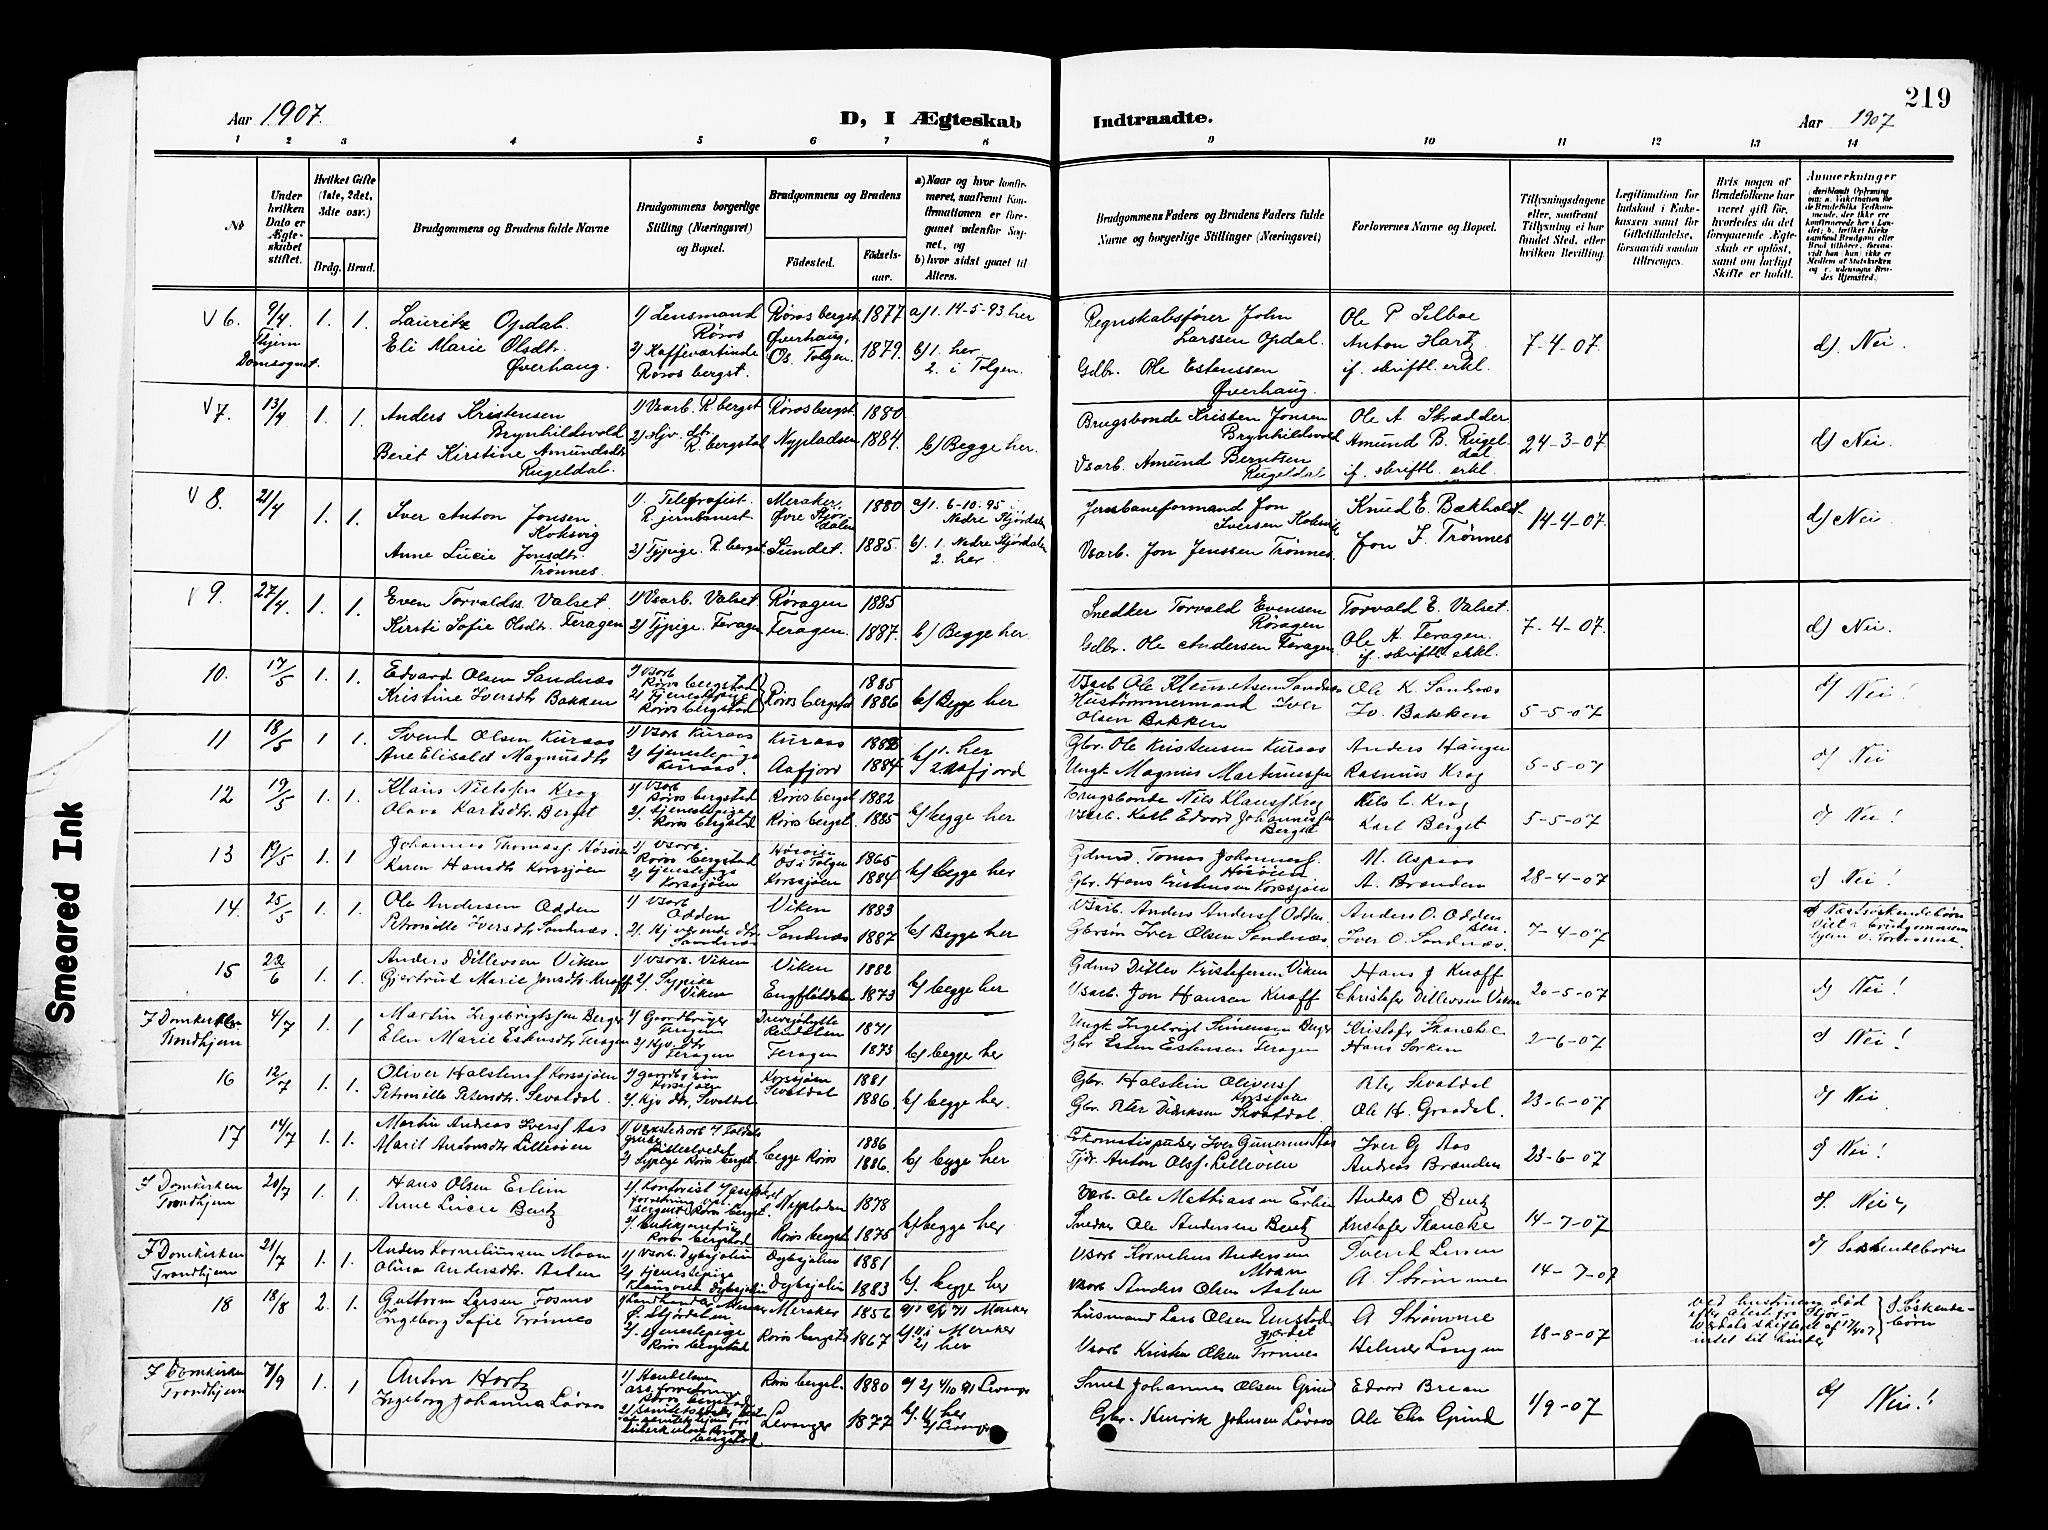 219
Aar 1907.
D, I Ægteskab
Indtraadte.
Aar 1907
1 2 3 4 5 6 7 8 9 10 11 12 13 14
No
Under hvilken Dato er Ægteskabet stiftet.
Hvilket Gifte (1ste, 2det, 3die osv.)
Brdg. Brud.
Brudgommens og Brudens fulde Navne
Brudgommens borgerlige Stilling (Næringsvei) og Bopæl.
Brudgommens og Brudens
Födested.
Födselsaar.
a) Naar og hvor konfirmeret, saafremt Konfirmationen er foregaaet udenfor Sognet, og
b) hvor sidst gaaet til Alters.
Brudgommens Faders og Brudens Faders fulde Navne og borgerlige Stillinger (Næringsvei)
Forlovernes Navne og Bopæl.
Tillysningsdagene eller, saafremt Tillysning ei har fundet Sted, efter hvilken Bevilling.
Legitimation for Indskud i Enkekassen samt for Giftetilladelse, forsaavidt saadan tiltrænges.
Hvis nogen af Brudefolkene har været gift før, hvorledes da det foregaaende Ægteskab er oplöst, samt om lovligt Skifte er holdt.
Anmerkninger
V 6. 9/4 1. 1. Lauritz Opdal. 1) Lensmand Røros Røros bergst. 1877 a) 1. 14-5-93 her
Tr.hjem Domsognet. Eli Marie Olsdtr. Øverhaug. 2) Kaffeværtinde Røros bergst. Øverhaug, Os. Tolgen. 1879. b) 1. her 2. i Tolgen.
Regnskabsfører John Larssen Opdal. Ole P Selboe Anton Hartz if. skriftl. erkl. 7-4-07. d). Nei.
Gdbr. Ole Estenssen Øverhaug.
V 7. 13/4 1. 1. Anders Kristensen Brynhildsvold 1) Vsarb. R. bergst. Rørosbergst. 1880
Berit Kirstine Amundsdt. Rugeldal. 2) Hjv. dtr. R. bergstad Nypladsen 1884. b) Begge her.
Brugsbonde Kristen Jonsen Brynhildsvold Ole A. Skrædder Amund B. Rugeldal if. skriftl. erkl. 24-3-07 d) Nei.
Vsarb. Amund Berntsen Rugeldal
V 8. 21/4 1. 1. Iver Anton Jonsen Koksvig 1). Telegrafist. R. jernbanest. Meraker, Øvre Stjørdalen 1880 a) 1. 6-10-95 i Nedre Stjørdalen
Anne Lucie Jonsdtr. Trønnes. 2) Tjpige. R. bergst. Sundet. 1885. b). 1. Nedre Stjørdalen 2. her.
Jernbaneformand Jon Iversen Koksvik Knud E. Bakholdt. Jon J. Trønnes 14-4-07. d) Nei
Vsarb. Jon Jenssen Trønnes.
V 9. 27/4. 1. 1. Even Torvaldss. Valset. 1) Vsarb. Valset. Røragen 1885
Kirsti Sofie Olsdtr. Feragen 2) Tjpige. Feragen. Feragen. 1887. b) Begge her
Snedker Torvald Evensen Røragen Torvald E. Valset. Ole A. Feragen. if. skriftl. erkl. 7-4-07. d) Nei.
Gdbr. Ole Andersen Feragen
10. 17/5 1. 1. Edvard Olsen Sandnæs 1) Vsarb Røros bergstad 1885
Kristine Iversdtr Bakken 2) Tjenestepige Røros bergstad Røros bergstad 1886 b) Begge her
Vsarb Ole Klemetsen Sandnæs Ole K. Sandnæs
Hustømmermand Iver Olsen Bakken Iv. Bakken 5-5-07 d) Nei!
11 18/5 1 1. Svend Olsen Kuraas 1) Vsarb Kuraas Kuraas 1882
Ane Elisabet Magnusdtr 2) tjenestepige Kuraas. Aafjord 1884 b) 1. her 2 Aafjord
Gbr. Ole Kristensen Kuraas Anders Haugen
Ungk. Magnus Martinussen Rasmus Krog 5-5-07 d) Nei
12 19/5 1. 1. Klaus Nielssen Krog 1) Vsarb Røros bergstad Røros bergst. 1882
Olava Karlsdtr Berget 2). tjenestepige Røros bergstad Røros bergst. 1885 b) begge her
Brugsbonde Nils Klauss Krog Nils C. Krog
Vsarb. Karl Edvard Johannessen Berget Karl Berget 5-5-07 d) Nei!
13 19/5 1. 1 Johannes Thomass. Høsøien 1) Vsarb. Røros bergstad Høsøien Os i Tolgen 1865
Karen Hansdtr Korssjøen 2) tjenestepige Korssjøen Korssjøen 1884 b) begge her
Gdmd. Tomas Johanness. Høsøien M. Aspaas
Gbr. Hans Kristensen Korssjøen A. Branden 28-4-07 d) Nei!
14. 25/5 1. 1. Ole Andersen Odden 1) Vsarb. Odden Viken 1883
Petronille Iversdtr Sandnæs 2). Hjv. dtr Sandnæs Sandnæs 1887 b) Begge her
Vsarb. Anders Anderss Odden. Anders O. Odden
Gbrsøn Iver Olsen Sandnæs Iver O. Sandnæs 7-4-07 d) Næstsøskendebørn
15 22/6 1. 1. Anders Ditlevsen Viken 1) Vsarb. Viken Viken 1882
Gjertrud Marie Jonsdtr. Knoff 2). Tjpige Viken Engfloldalen 1873 b) begge her
Gdmd Ditlev Kristofersen Viken Hans J Knoff
Vsarb. Jon Hansen Knoff Christofer Ditlevsen Viken 20-5-07 d) Nei!
I Domkirken Trondhjem 4/7 1. 1 Martin Ingebrigtssen Berger 1) Gaardbruger Feragen Rendalen 1871
Elen Marie Estensdtr Feragen 2) Hjv. dtr Feragen Feragen 1873 b) begge her
Ungk Ingebrigt Simensen Berger Kristofer Skancke
Gbr Esten Estensen Feragen Hans Sorken 2-6-07 d) Nei!
16 12/7 1. 1. Oliver Halstens Korssjøen 1) gaardbr.søn Korssjøen Korssjøen 1881
Petronille Petersdtr. Sevatdal 2). Hjv dtr, Sevatdal Sevatdal 1886. b) begge her.
Gbr. Halstein Olivers Korssjøen Peter Sevatdal
Gbr. Peter Didriksen Sevatdal Ole H. Graadal. 23-6-07 d) Nei
17 14/7 1. 1. Martin Andreas Iverss Aas 1886
Marit Antonsdtr Lilleøien 2) Tjpige Røros bergst. begge Røros 1886. b) begge her
Iver Gunerius Aas Iver G Aas
Anton Olss. Lilleøien Andreas Branden 23-6-07 d) Nei!
I Domkirken Trondhjem 20/7 1. 1. Hans Olsen Erlien Nypladsen 1878
Anne Lucie Bentz Røros bergstad Røros bergst 1875 b) begge her
Vsarb. Ole Mathiassen Erlien Anders O Bentz
Snedker Ole Andersen Bentz Kristofer Skancke 14-7-07 d. Nei,
I Domkirken Trondhjem 21/7 1. 1. Anders Korneliussen Moan 1) Vsarb. Dybsjølien Dybsjølien 1881
Olina Andersdtr. Aslen 2) tjenestepige Dybsjølien Dybsjølien 1883 b). begge her
Vsarb Kornelius Andersen Moan
Vsarb Anders Olsen Aslen A Strømme 14-7-07 d) Søskendebørn
18 18/8 2. 1. Guttorm Larsen Fosmo Meraker 1856 Meraker
Ingeborg Sofie Trønnes 2). tjenestepige Røros bergstad Røros bergstad 1867 b) 1) i Meraker 2) her
Husmand Lars Olsen A Strømme
Vsarb Kristen Olsen Trønnes Helmer Langen 18-8-07 ved hustruens død efter attest fra Stjør- Værdals skifteret af 17/4 07 intet til hinder d) Søskendebørn
I Domkirken Trondhjem 7/9 1. 1 Anton Hartz Røros bergst. 1880 4/10 91 Levanger
Ingeborg Johanna Løvaas Levanger 1877 b). 1) her 2) Levanger
Smed Johannes Olsen Grind Edvard Brean
Gbr. Henrik Johnsen Løvaas Ole Chr Grind 1/9-07 d) Nei!
Smeared Ink